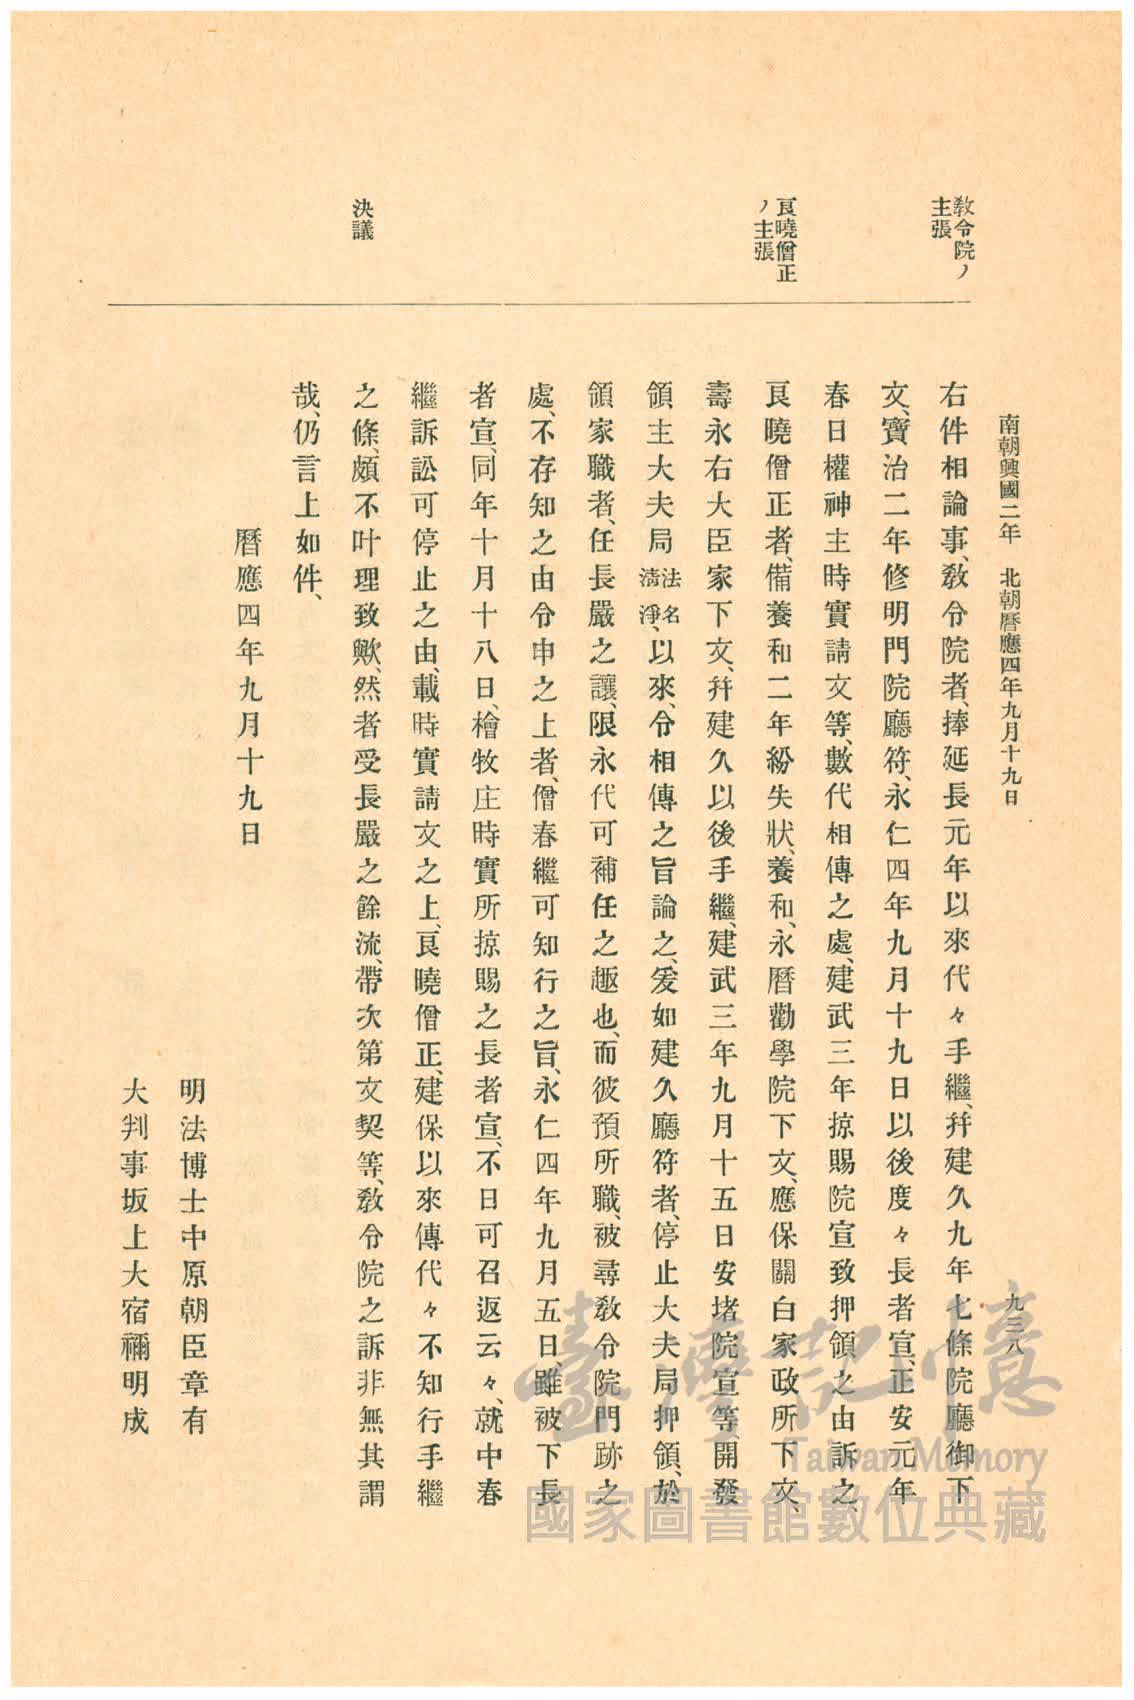 南朝興國二年　北朝曆應四年九月十九日
九三八
教令院ノ
主張
良曉僧正
ノ主張
決議
右件相論事、教令院者、捧延長元年以來代々手繼、幷建久九年七條院廳御下
文、寶治二年修明門院廳符、永仁四年九月十九日以後度々長者宣、正安元年
春日權神主時實請文等、數代相傳之處、建武三年掠賜院宣致押領之由訴之、
良曉僧正者、備養和二年紛失狀、養和、永曆勸學院下文、應保關白家政所下文、
壽永右大臣家下文、幷建久以後手繼、建武三年九月十五日安堵院宣等、開發
領主大夫局法名淸淨、以來、令相傳之旨論之、爰如建久廳符者、停止大夫局押領、於
領家職者、任長嚴之讓、限永代可補任之趣也、而彼預所職、被尋教令院門跡之
處、不存知之由令申之上者、僧春繼可知行之旨、永仁四年九月五日、雖被下長
者宣、同年十月十八日、檜牧庄時實所掠賜之長者宣、不日可召返云々、就中春
繼訴訟可停止之由、載時實請文之上、良曉僧正、建保以來傳代々不知行手繼
之條、頗不叶理致歟、然者受長嚴之餘流、帶次第文契等、教令院之訴非無其謂
哉、仍言上如件、
曆應四年九月十九日
明法博士中原朝臣章有
大判事坂上大宿禰明成
臺灣記憶
Taiwan Memory
國家圖書館數位典藏